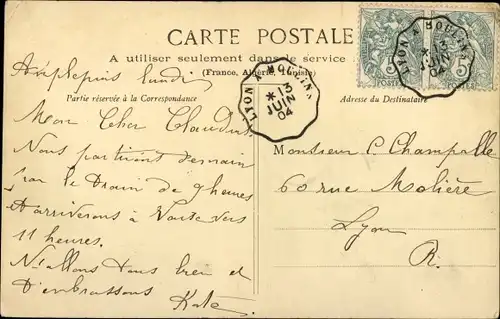 CARTE POSTALE
A utiliser seulement dans le service
(France, Algérie, Tunisie)
Partie réservée à la Correspondance
Adresse du Destinataire
LYON A MOULINS
* 13
JUIN
04
LYON A MOULINS
* 13
JUIN
04
5
5
Amplepuis lundi
Mon Cher Claudius
Nous partirons demain
par le Train de 9 heures
et arriverons à Vaise vers
11 heures.
Ns allons tous bien et
t'embrassons Kate
Monsieur C Champalle
60 rue Molière
Lyon
R.